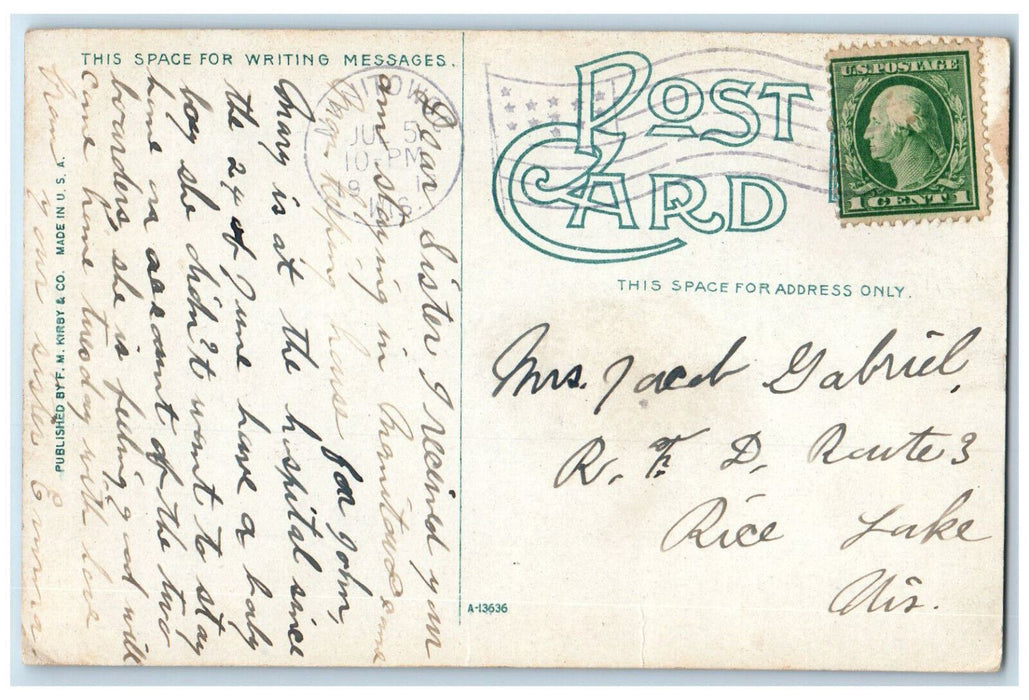 THIS SPACE FOR WRITING MESSAGES.
Dear Sister I received your
am staying in Manitowoc
keeping house for John,
Mary is at the hospital since
the 24 of June have a baby
boy she didn't want to stay
home on account of the two
boarders, she is feeling good will
come home tuesday with love
from your sister Emma
PUBLISHED BY F. M. KIRBY & CO. MADE IN U. S. A.
NITOW
JUL 5
10-PM
191
WIS.
POST CARD
U.S. POSTAGE
1 CENT 1
THIS SPACE FOR ADDRESS ONLY.
Mrs. Jacob Gabriel,
R. F. D. Route 3
Rice Lake
Wis.
A-13636